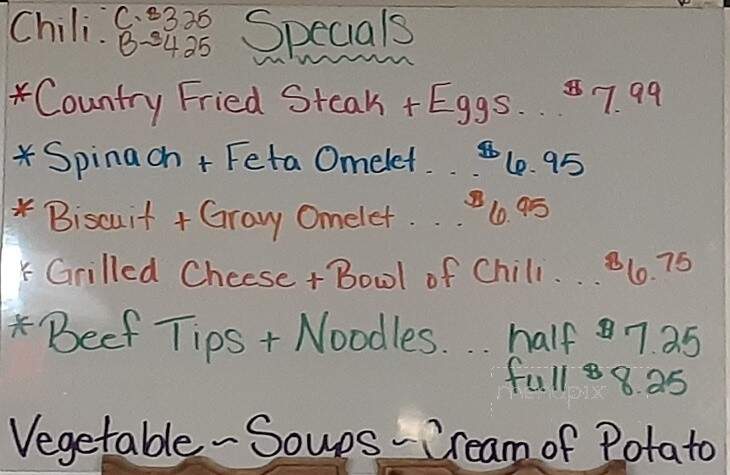 Chili: C-$3.25 Specials
B-$4.25
*Country Fried Steak + Eggs... $7.99
*Spinach + Feta Omelet... $6.95
*Biscuit + Gravy Omelet.... $6.95
*Grilled Cheese + Bowl of Chili... $6.75
*Beef Tips + Noodles... half $7.25
full $8.25
menupix
Vegetable ~ Soups ~ Cream of Potato